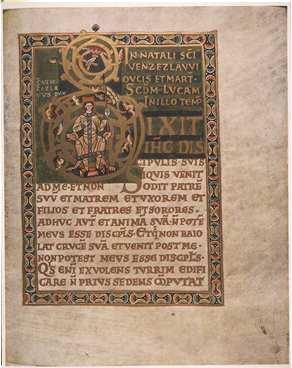 IN NATALI SCI
VENZEZLAVVI
DVCIS ET MART.
SCDM LVCAM
IN ILLO TEMP
DIXIT
IHC DIS
CIPVLIS SVIS
SIQVIS VENIT
AD ME ET NON ODIT PATRE
SVV ET MATREM ET VXOREM ET
FILIOS ET FRATRES ET SORORES
ADHVC AVT ET ANIMA SVA N POTE
MEVS ESSE DISCPLS. ET QI NON BAIO
LAT CRVCE SVA ET VENIT POST ME
NON POTEST MEVS ESSE DISCPLS.
QS ENI EX VOLENS TVRRIM EDIFI
CARE N PRIVS SEDENS COPVTAT